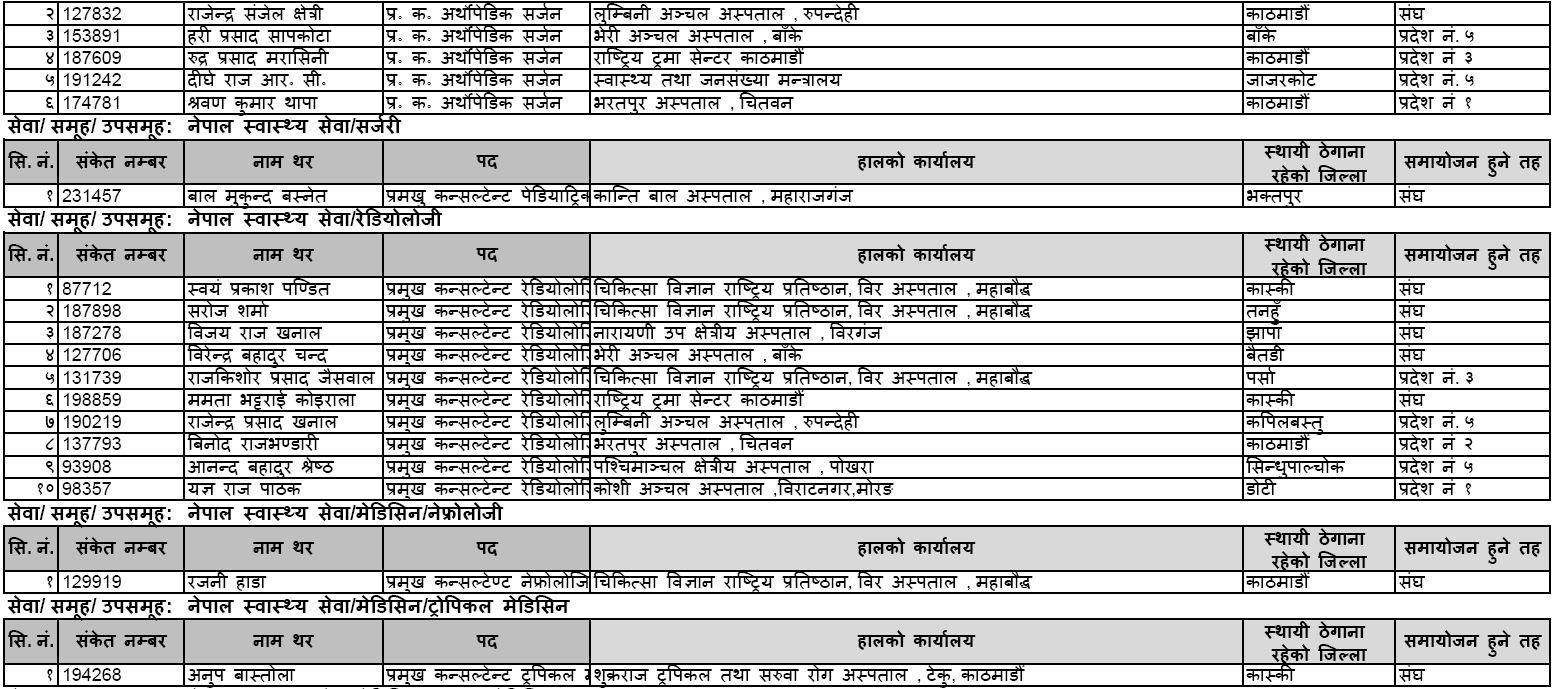 २ 127832 राजेन्द्र संजेल क्षेत्री प्र. क. अर्थोपेडिक सर्जन लुम्बिनी अञ्चल अस्पताल , रुपन्देही काठमाडौं संघ
३ 153891 हरी प्रसाद सापकोटा प्र. क. अर्थोपेडिक सर्जन भेरी अञ्चल अस्पताल , बाँके बाँके प्रदेश नं. ५
४ 187609 रुद्र प्रसाद मरासिनी प्र. क. अर्थोपेडिक सर्जन राष्ट्रिय ट्रमा सेन्टर काठमाडौं काठमाडौं प्रदेश नं ३
५ 191242 दीर्घ राज आर. सी. प्र. क. अर्थोपेडिक सर्जन स्वास्थ्य तथा जनसंख्या मन्त्रालय जाजरकोट प्रदेश नं. ५
६ 174781 श्रवण कुमार थापा प्र. क. अर्थोपेडिक सर्जन भरतपुर अस्पताल , चितवन काठमाडौं प्रदेश नं १
सेवा/ समूह/ उपसमूह: नेपाल स्वास्थ्य सेवा/सर्जरी
सि. नं. संकेत नम्बर नाम थर पद हालको कार्यालय स्थायी ठेगाना रहेको जिल्ला समायोजन हुने तह
१ 231457 बाल मुकुन्द बस्नेत प्रमखु कन्सल्टेन्ट पेडियाट्रिक कान्ति बाल अस्पताल , महाराजगंज भक्तपुर संघ
सेवा/ समूह/ उपसमूह: नेपाल स्वास्थ्य सेवा/रेडियोलोजी
सि. नं. संकेत नम्बर नाम थर पद हालको कार्यालय स्थायी ठेगाना रहेको जिल्ला समायोजन हुने तह
१ 87712 स्वयं प्रकाश पण्डित प्रमुख कन्सल्टेन्ट रेडियोलोजि चिकित्सा विज्ञान राष्ट्रिय प्रतिष्ठान, विर अस्पताल , महाबौद्ध कास्की संघ
२ 187898 सरोज शर्मा प्रमुख कन्सल्टेन्ट रेडियोलोजि चिकित्सा विज्ञान राष्ट्रिय प्रतिष्ठान, विर अस्पताल , महाबौद्ध तनहुँ संघ
३ 187278 विजय राज खनाल प्रमुख कन्सल्टेन्ट रेडियोलोजि नारायणी उप क्षेत्रीय अस्पताल , विरगंज झापा संघ
४ 127706 विरेन्द्र बहादुर चन्द प्रमुख कन्सल्टेन्ट रेडियोलोजि भेरी अञ्चल अस्पताल , बाँके बैतडी संघ
५ 131739 राजकिशोर प्रसाद जैसवाल प्रमुख कन्सल्टेन्ट रेडियोलोजि चिकित्सा विज्ञान राष्ट्रिय प्रतिष्ठान, विर अस्पताल , महाबौद्ध पर्सा प्रदेश नं. ३
६ 198859 ममता भट्टराई कोइराला प्रमुख कन्सल्टेन्ट रेडियोलोजि राष्ट्रिय ट्रमा सेन्टर काठमाडौं कास्की संघ
७ 190219 राजेन्द्र प्रसाद खनाल प्रमुख कन्सल्टेन्ट रेडियोलोजि लुम्बिनी अञ्चल अस्पताल , रुपन्देही कपिलबस्तु प्रदेश नं. ५
८ 137793 बिनोद राजभण्डारी प्रमुख कन्सल्टेन्ट रेडियोलोजि भरतपुर अस्पताल , चितवन काठमाडौं प्रदेश नं २
९ 93908 आनन्द बहादुर श्रेष्ठ प्रमुख कन्सल्टेन्ट रेडियोलोजि पश्चिमाञ्चल क्षेत्रीय अस्पताल , पोखरा सिन्धुपाल्चोक प्रदेश नं ५
१० 98357 यज्ञ राज पाठक प्रमुख कन्सल्टेन्ट रेडियोलोजि कोशी अञ्चल अस्पताल ,विराटनगर,मोरङ डोटी प्रदेश नं १
सेवा/ समूह/ उपसमूह: नेपाल स्वास्थ्य सेवा/मेडिसिन/नेफ्रोलोजी
सि. नं. संकेत नम्बर नाम थर पद हालको कार्यालय स्थायी ठेगाना रहेको जिल्ला समायोजन हुने तह
१ 129919 रजनी हाडा प्रमुख कन्सल्टेण्ट नेफ्रोलोजि चिकित्सा विज्ञान राष्ट्रिय प्रतिष्ठान, विर अस्पताल , महाबौद्ध काठमाडौं संघ
सेवा/ समूह/ उपसमूह: नेपाल स्वास्थ्य सेवा/मेडिसिन/ट्रोपिकल मेडिसिन
सि. नं. संकेत नम्बर नाम थर पद हालको कार्यालय स्थायी ठेगाना रहेको जिल्ला समायोजन हुने तह
१ 194268 अनुप बास्तोला प्रमुख कन्सल्टेन्ट ट्रपिकल शुक्रराज ट्रपिकल तथा सरुवा रोग अस्पताल , टेकु, काठमाडौं कास्की संघ